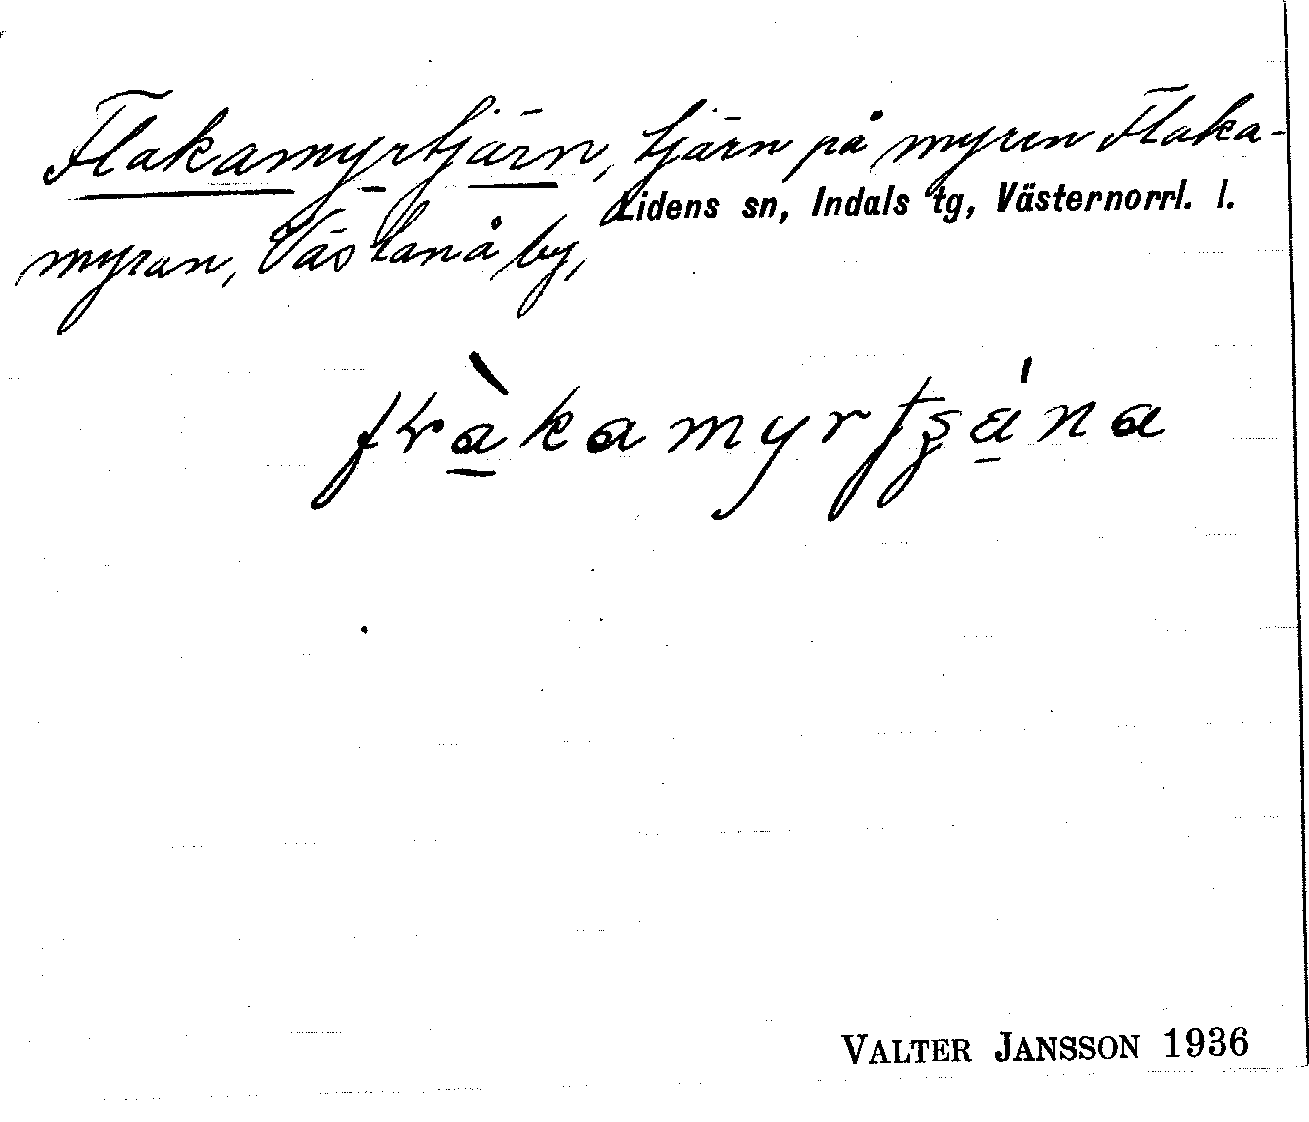 Flakamyrtjärn, tjärn på myren Flaka-
Lidens sn, Indals tg, Västernorrl. l.
myran, Västanå by,
VALTER JANSSON 1936